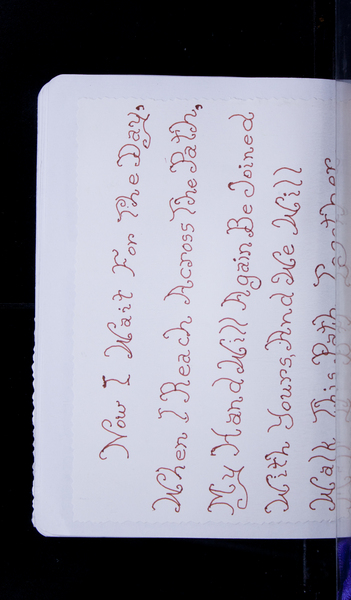 Now I Wait For The Day,
When I Reach Across The Path,
My Hand Will Again Be Joined
With Yours, And We Will
Walk This Path Together